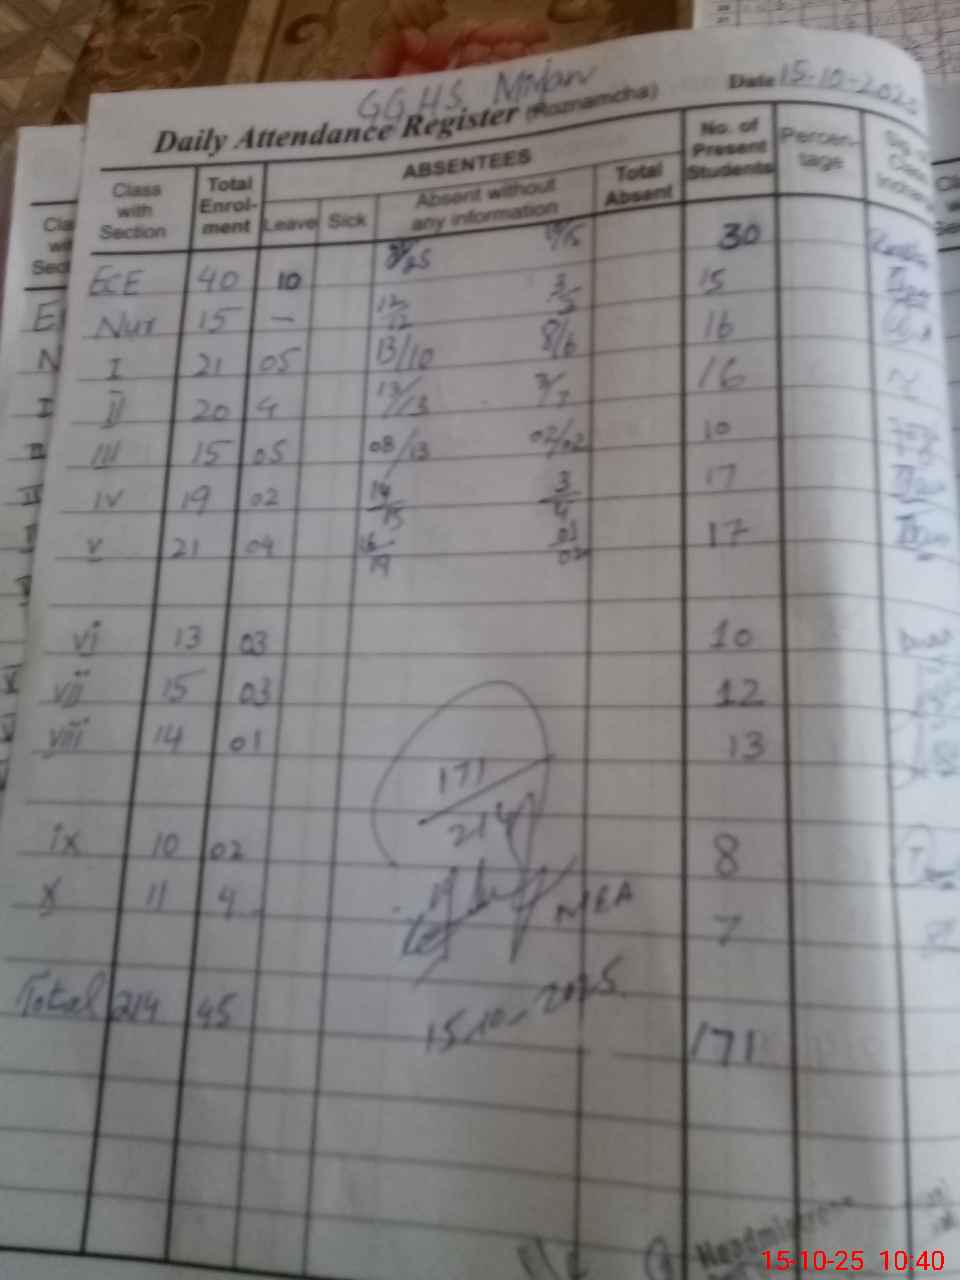 GGHS
Daily Attendance Register (Roznamcha) Date 15-10-2025
Class with Section Total Enrol-ment ABSENTEES No. of Present Students Percen-tage
Leave Sick Absent without any information Total Absent
ECE 40 10 /25 /15 30
Nur 15 — 12/12 3/3 15
I 21 05 13/10 8/6 16
II 20 4 13/13 3/7 16
III 15 05 08/13 02/02 10
IV 19 02 14/15 3/4 17
V 21 04 16/19 01/02 17
vi 13 03 10
vii 15 03 12
viii 14 01 13
171/214
ix 10 02 8
x 11 4 7
MEA
Total 214 45 171
15-10-2025
Headmistress
15-10-25 10:40